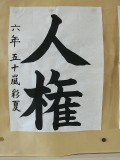 人権
六年 五十嵐彩夏